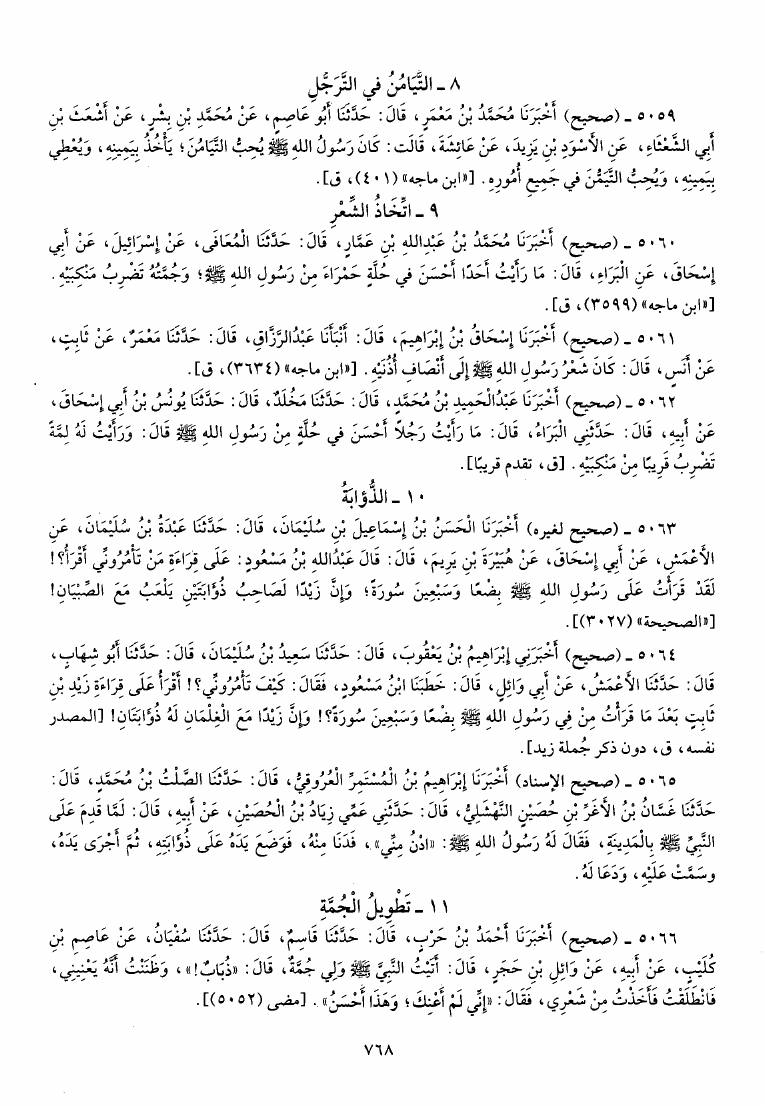 ٨ ـ التَّيَامُنُ في التَّرَجُّلِ
٥٠٥٩ ـ (صحيح) أَخْبَرَنَا مُحَمَّدُ بْنُ مَعْمَرٍ، قَالَ: حَدَّثَنَا أَبُو عَاصِمٍ، عَنْ مُحَمَّدِ بْنِ بِشْرٍ، عَنْ أَشْعَثَ بْنِ
أَبِي الشَّعْثَاءِ، عَنِ الأَسْوَدِ بْنِ يَزِيدَ، عَنْ عَائِشَةَ، قَالَت: كَانَ رَسُولُ اللهِ ﷺ يُحِبُّ التَّيَامُنَ؛ يَأْخُذُ بِيَمِينِهِ، وَيُعْطِي
بِيَمِينِهِ، وَيُحِبُّ التَّيَمُّنَ في جَمِيعِ أُمُورِهِ. [«ابن ماجه» (٤٠١)، ق].
٩ ـ اتِّخَاذُ الشِّعْرِ
٥٠٦٠ ـ (صحيح) أَخْبَرَنَا مُحَمَّدُ بْنُ عَبْدِاللهِ بْنِ عَمَّارٍ، قَالَ: حَدَّثَنَا الْمُعَافَى، عَنْ إِسْرَائِيلَ، عَنْ أَبِي
إِسْحَاقَ، عَنِ الْبَرَاءِ، قَالَ: مَا رَأَيْتُ أَحَدًا أَحْسَنَ في حُلَّةٍ حَمْرَاءَ مِنْ رَسُولِ اللهِ ﷺ؛ وَجُمَّتُهُ تَضْرِبُ مَنْكِبَيْهِ.
[«ابن ماجه» (٣٥٩٩)، ق].
٥٠٦١ ـ (صحيح) أَخْبَرَنَا إِسْحَاقُ بْنُ إِبْرَاهِيمَ، قَالَ: أَنْبَأَنَا عَبْدُالرَّزَّاقِ، قَالَ: حَدَّثَنَا مَعْمَرٌ، عَنْ ثَابِتٍ،
عَنْ أَنَسٍ، قَالَ: كَانَ شَعْرُ رَسُولِ اللهِ ﷺ إِلَى أَنْصَافِ أُذُنَيْهِ. [«ابن ماجه» (٣٦٣٤)، ق].
٥٠٦٢ ـ (صحيح) أَخْبَرَنَا عَبْدُالْحَمِيدِ بْنُ مُحَمَّدٍ، قَالَ: حَدَّثَنَا مَخْلَدٌ، قَالَ: حَدَّثَنَا يُونُسُ بْنُ أَبِي إِسْحَاقَ،
عَنْ أَبِيهِ، قَالَ: حَدَّثَنِي الْبَرَاءُ، قَالَ: مَا رَأَيْتُ رَجُلاً أَحْسَنَ في حُلَّةٍ مِنْ رَسُولِ اللهِ ﷺ قَالَ: وَرَأَيْتُ لَهُ لِمَّةً
تَضْرِبُ قَرِيبًا مِنْ مَنْكِبَيْهِ. [ق، تقدم قريبًا].
١٠ ـ الذُّؤَابَةُ
٥٠٦٣ ـ (صحيح لغيره) أَخْبَرَنَا الْحَسَنُ بْنُ إِسْمَاعِيلَ بْنِ سُلَيْمَانَ، قَالَ: حَدَّثَنَا عَبْدَةُ بْنُ سُلَيْمَانَ، عَنِ
الأَعْمَشِ، عَنْ أَبِي إِسْحَاقَ، عَنْ هُبَيْرَةَ بْنِ يَرِيمَ، قَالَ: قَالَ عَبْدُاللهِ بْنُ مَسْعُودٍ: عَلَى قِرَاءَةِ مَنْ تَأْمُرُونِّي أَقْرَأُ؟!
لَقَدْ قَرَأْتُ عَلَى رَسُولِ اللهِ ﷺ بِضْعًا وَسَبْعِينَ سُورَةً؛ وَإِنَّ زَيْدًا لَصَاحِبُ ذُؤَابَتَيْنِ يَلْعَبُ مَعَ الصِّبْيَانِ!
[«الصحيحة» (٣٠٢٧)].
٥٠٦٤ ـ (صحيح) أَخْبَرَنِي إِبْرَاهِيمُ بْنُ يَعْقُوبَ، قَالَ: حَدَّثَنَا سَعِيدُ بْنُ سُلَيْمَانَ، قَالَ: حَدَّثَنَا أَبُو شِهَابٍ،
قَالَ: حَدَّثَنَا الأَعْمَشُ، عَنْ أَبِي وَائِلٍ، قَالَ: خَطَبَنَا ابْنُ مَسْعُودٍ، فَقَالَ: كَيْفَ تَأْمُرُونِّي؟! أَقْرَأُ عَلَى قِرَاءَةِ زَيْدِ بْنِ
ثَابِتٍ بَعْدَ مَا قَرَأْتُ مِنْ فِي رَسُولِ اللهِ ﷺ بِضْعًا وَسَبْعِينَ سُورَةً؟! وَإِنَّ زَيْدًا مَعَ الْغِلْمَانِ لَهُ ذُؤَابَتَانِ! [المصدر
نفسه، ق، دون ذكر جُملة زيد].
٥٠٦٥ ـ (صحيح الإسناد) أَخْبَرَنَا إِبْرَاهِيمُ بْنُ الْمُسْتَمِرِّ الْعُرُوقِيُّ، قَالَ: حَدَّثَنَا الصَّلْتُ بْنُ مُحَمَّدٍ، قَالَ:
حَدَّثَنَا غَسَّانُ بْنُ الأَغَرِّ بْنِ حُصَيْنِ النَّهْشَلِيُّ، قَالَ: حَدَّثَنِي عَمِّي زِيَادُ بْنُ الْحُصَيْنِ، عَنْ أَبِيهِ، قَالَ: لَمَّا قَدِمَ عَلَى
النَّبِيِّ ﷺ بِالْمَدِينَةِ، فَقَالَ لَهُ رَسُولُ اللهِ ﷺ: «ادْنُ مِنِّي»، فَدَنَا مِنْهُ، فَوَضَعَ يَدَهُ عَلَى ذُؤَابَتِهِ، ثُمَّ أَجْرَى يَدَهُ،
وَسَمَّتَ عَلَيْهِ، وَدَعَا لَهُ.
١١ ـ تَطْوِيلُ الْجُمَّةِ
٥٠٦٦ ـ (صحيح) أَخْبَرَنَا أَحْمَدُ بْنُ حَرْبٍ، قَالَ: حَدَّثَنَا قَاسِمٌ، قَالَ: حَدَّثَنَا سُفْيَانُ، عَنْ عَاصِمِ بْنِ
كُلَيْبٍ، عَنْ أَبِيهِ، عَنْ وَائِلِ بْنِ حَجَرٍ، قَالَ: أَتَيْتُ النَّبِيَّ ﷺ وَلِي جُمَّةٌ، قَالَ: «ذُبَابٌ!»، وَظَنَنْتُ أَنَّهُ يَعْنِينِي،
فَانْطَلَقْتُ فَأَخَذْتُ مِنْ شَعْرِي، فَقَالَ: «إِنِّي لَمْ أَعْنِكَ؛ وَهَذَا أَحْسَنُ». [مضى (٥٠٥٢)].
٧٦٨